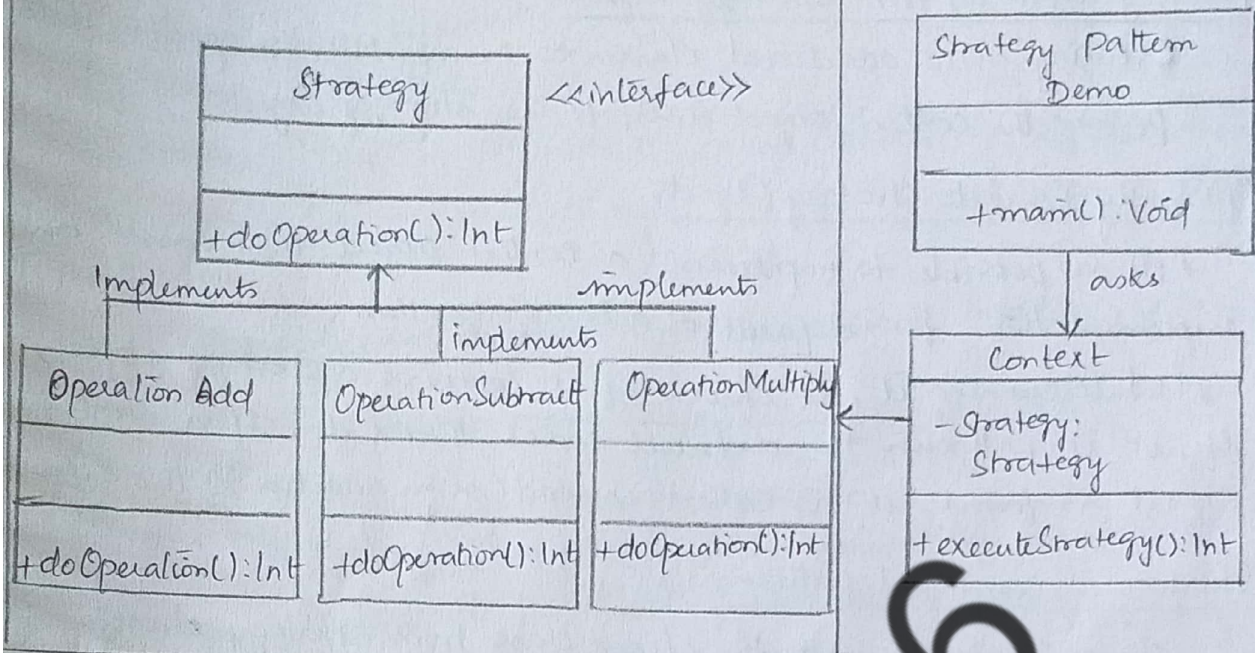 Strategy
<<interface>>
+doOperation():Int
Implements
implements
implements
Operation Add
+doOperation():Int
OperationSubtract
+doOperation():Int
OperationMultiply
+doOperation():Int
Strategy Pattern
Demo
+main():Void
asks
Context
-Strategy:
Strategy
+executeStrategy():Int